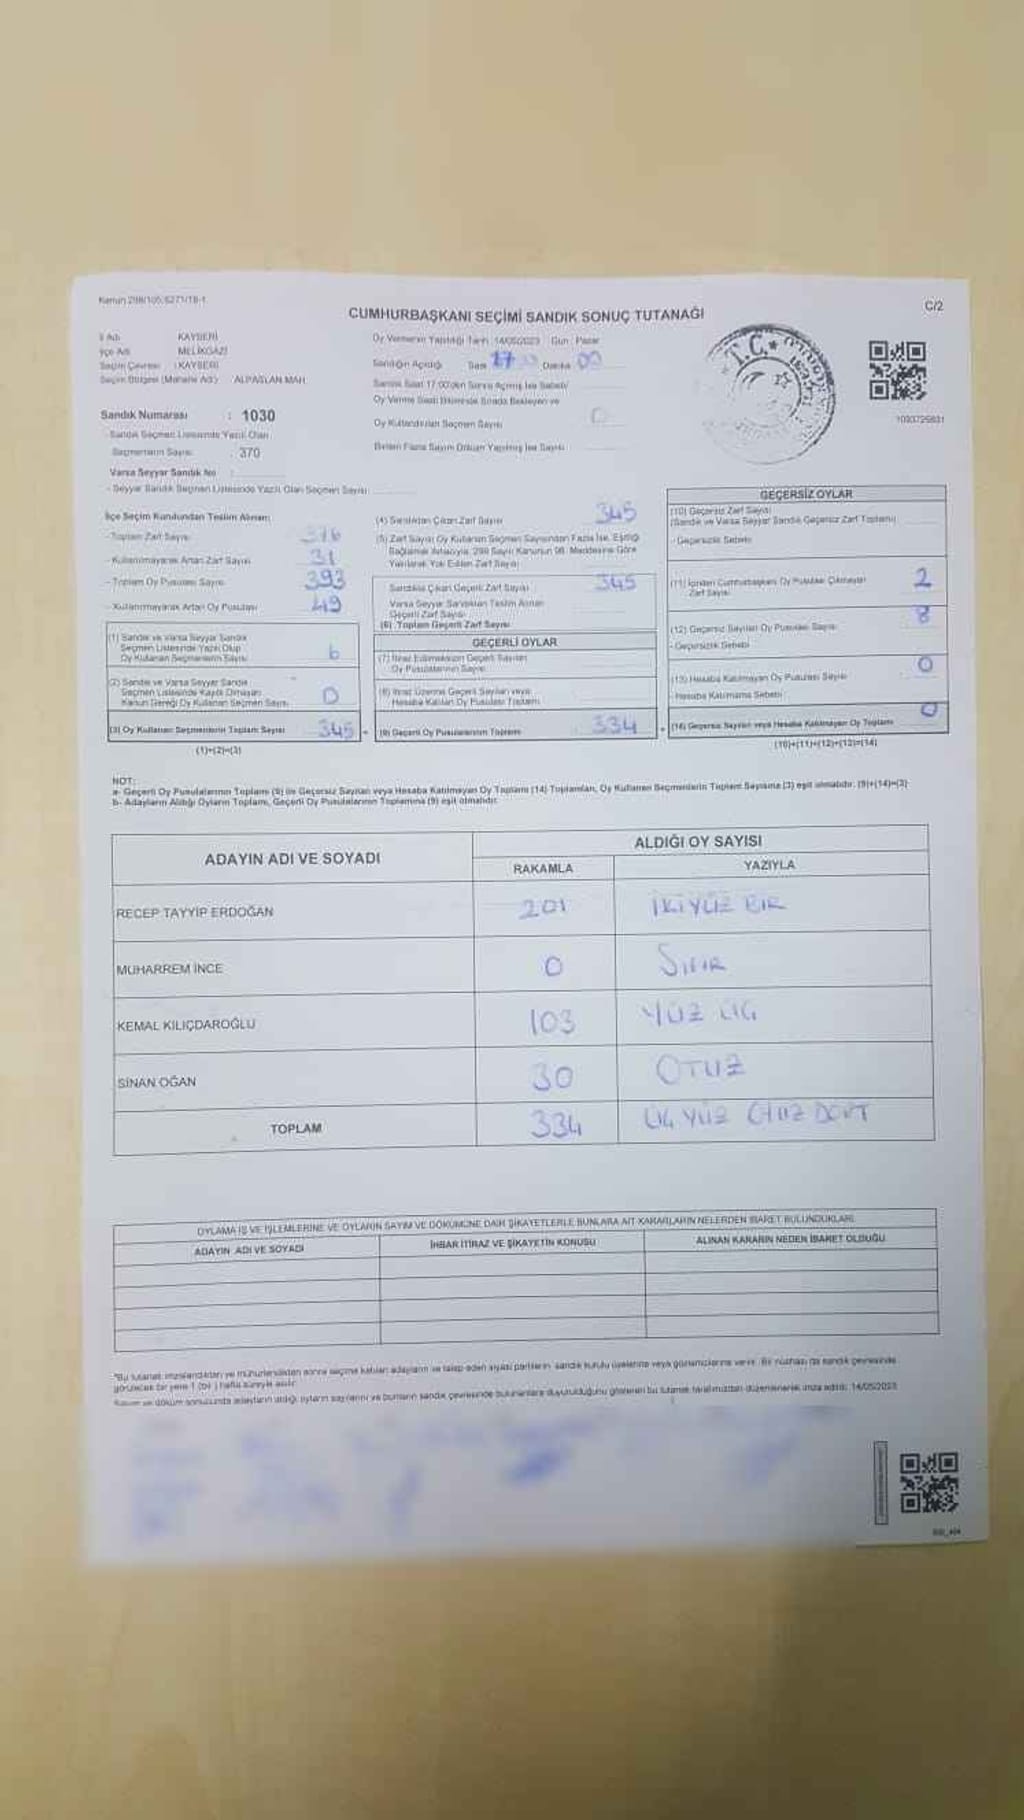 Kanun 298/105, 6271/18-1
C/2
CUMHURBAŞKANI SEÇİMİ SANDIK SONUÇ TUTANAĞI
İl Adı KAYSERİ
İlçe Adı MELİKGAZİ
Seçim Çevresi : KAYSERİ
Seçim Bölgesi (Mahalle Adı) : ALPASLAN MAH.
Sandık Numarası : 1030
- Sandık Seçmen Listesinde Yazılı Olan
Seçmenlerin Sayısı : 370
Varsa Seyyar Sandık No :
- Seyyar Sandık Seçmen Listesinde Yazılı Olan Seçmen Sayısı:
Oy Vermenin Yapıldığı Tarih : 14/05/2023 Gün : Pazar
Sandığın Açıldığı Saat 17 Dakika 00
Sandık Saat 17:00'den Sonra Açılmış İse Sebebi/
Oy Verme Saati Bitiminde Sırada Bekleyen ve
Oy Kullandırılan Seçmen Sayısı 0
Birden Fazla Sayım Döküm Yapılmış İse Sayısı
T.C.
İlçe Seçim Kurulundan Teslim Alınan:
- Toplam Zarf Sayısı 376
- Kullanılmayarak Artan Zarf Sayısı 31
- Toplam Oy Pusulası Sayısı 393
- Kullanılmayarak Artan Oy Pusulası 49
(1) Sandık ve Varsa Seyyar Sandık
Seçmen Listesinde Yazılı Olup
Oy Kullanan Seçmenlerin Sayısı 6
(2) Sandık ve Varsa Seyyar Sandık
Seçmen Listesinde Kayıtlı Olmayan
Kanun Gereği Oy Kullanan Seçmen Sayısı 0
(3) Oy Kullanan Seçmenlerin Toplam Sayısı 345
(1)+(2)=(3)
(4) Sandıktan Çıkan Zarf Sayısı 345
(5) Zarf Sayısı Oy Kullanan Seçmen Sayısından Fazla İse, Eşitliği
Sağlamak Amacıyla, 298 Sayılı Kanunun 98. Maddesine Göre
Yakılarak Yok Edilen Zarf Sayısı
Sandıkta Çıkan Geçerli Zarf Sayısı 345
Varsa Seyyar Sandıktan Teslim Alınan
Geçerli Zarf Sayısı
(6) Toplam Geçerli Zarf Sayısı
GEÇERLİ OYLAR
(7) İtiraz Edilmeksizin Geçerli Sayılan
Oy Pusulalarının Sayısı
(8) İtiraz Üzerine Geçerli Sayılan veya
Hesaba Katılan Oy Pusulası Toplamı
(9) Geçerli Oy Pusulalarının Toplamı 334
GEÇERSİZ OYLAR
(10) Geçersiz Zarf Sayısı
(Sandık ve Varsa Seyyar Sandık Geçersiz Zarf Toplamı)
- Geçersizlik Sebebi
(11) İçinden Cumhurbaşkanı Oy Pusulası Çıkmayan
Zarf Sayısı 2
(12) Geçersiz Sayılan Oy Pusulası Sayısı 8
- Geçersizlik Sebebi
(13) Hesaba Katılmayan Oy Pusulası Sayısı 0
- Hesaba Katılmama Sebebi
(14) Geçersiz Sayılan veya Hesaba Katılmayan Oy Toplamı 0
(10)+(11)+(12)+(13)=(14)
NOT:
a- Geçerli Oy Pusulalarının Toplamı (9) ile Geçersiz Sayılan veya Hesaba Katılmayan Oy Toplamı (14) Toplamları, Oy Kullanan Seçmenlerin Toplam Sayısına (3) eşit olmalıdır. (9)+(14)=(3)
b- Adayların Aldığı Oyların Toplamı, Geçerli Oy Pusulalarının Toplamına (9) eşit olmalıdır.
ADAYIN ADI VE SOYADI
ALDIĞI OY SAYISI
RAKAMLA YAZIYLA
RECEP TAYYİP ERDOĞAN 201 İKİYÜZ BİR
MUHARREM İNCE 0 SIFIR
KEMAL KILIÇDAROĞLU 103 YÜZ ÜÇ
SİNAN OĞAN 30 OTUZ
TOPLAM 334 ÜÇ YÜZ OTUZ DÖRT
OYLAMA İŞ VE İŞLEMLERİNE VE OYLARIN SAYIM VE DÖKÜMÜNE DAİR ŞİKAYETLERLE BUNLARA AİT KARARLARIN NELERDEN İBARET BULUNDUKLARI
ADAYIN ADI VE SOYADI İHBAR İTİRAZ VE ŞİKAYETİN KONUSU ALINAN KARARIN NEDEN İBARET OLDUĞU
*Bu tutanak imzalandıktan ve mühürlendikten sonra seçime katılan adayların ve talep eden siyasi partilerin sandık kurulu üyelerine veya gözlemcilerine verilir. Bir nüshası da sandık çevresinde
görülecek bir yere 1 (bir) hafta süreyle asılır.
Sayım ve döküm sonucunda adayların aldığı oyların sayılarını ve bunların sandık çevresinde bulunanlara duyurulduğunu gösteren bu tutanak tarafımızdan düzenlenerek imza edildi. 14/05/2023